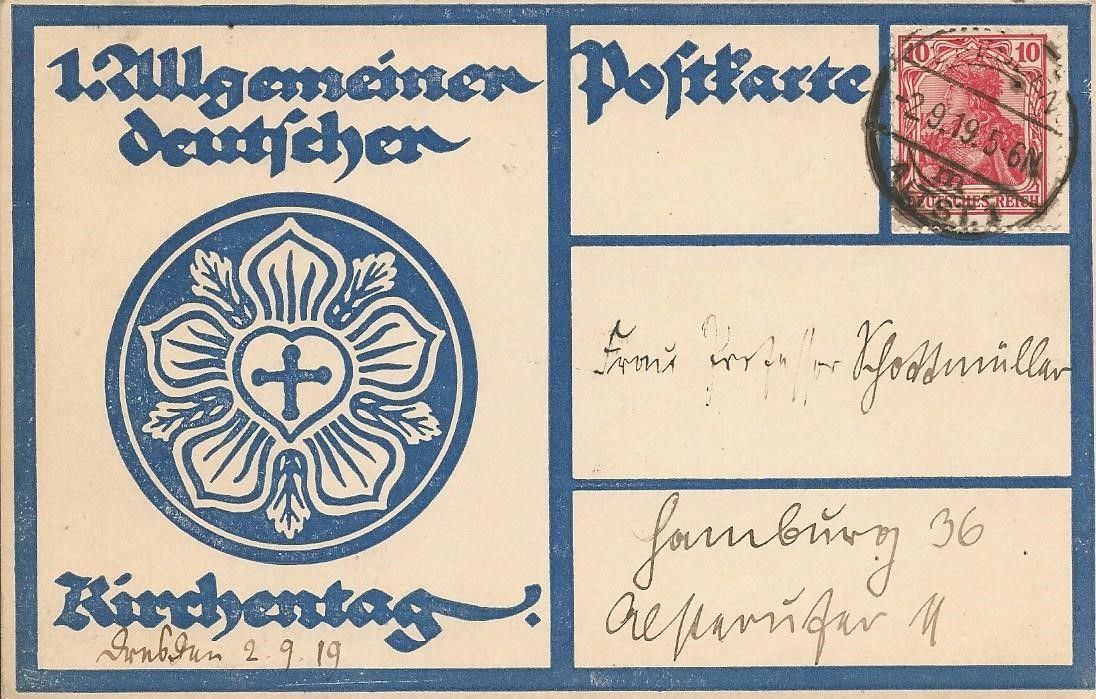 1. Allgemeiner
deutscher
Kirchentag.
Dresden 2. 9. 19
Postkarte
10 10
DEUTSCHES REICH
-2.9.19.5-6N
ALTST. 1
Frau Professor Schottmüller
Hamburg 36
Alsterufer